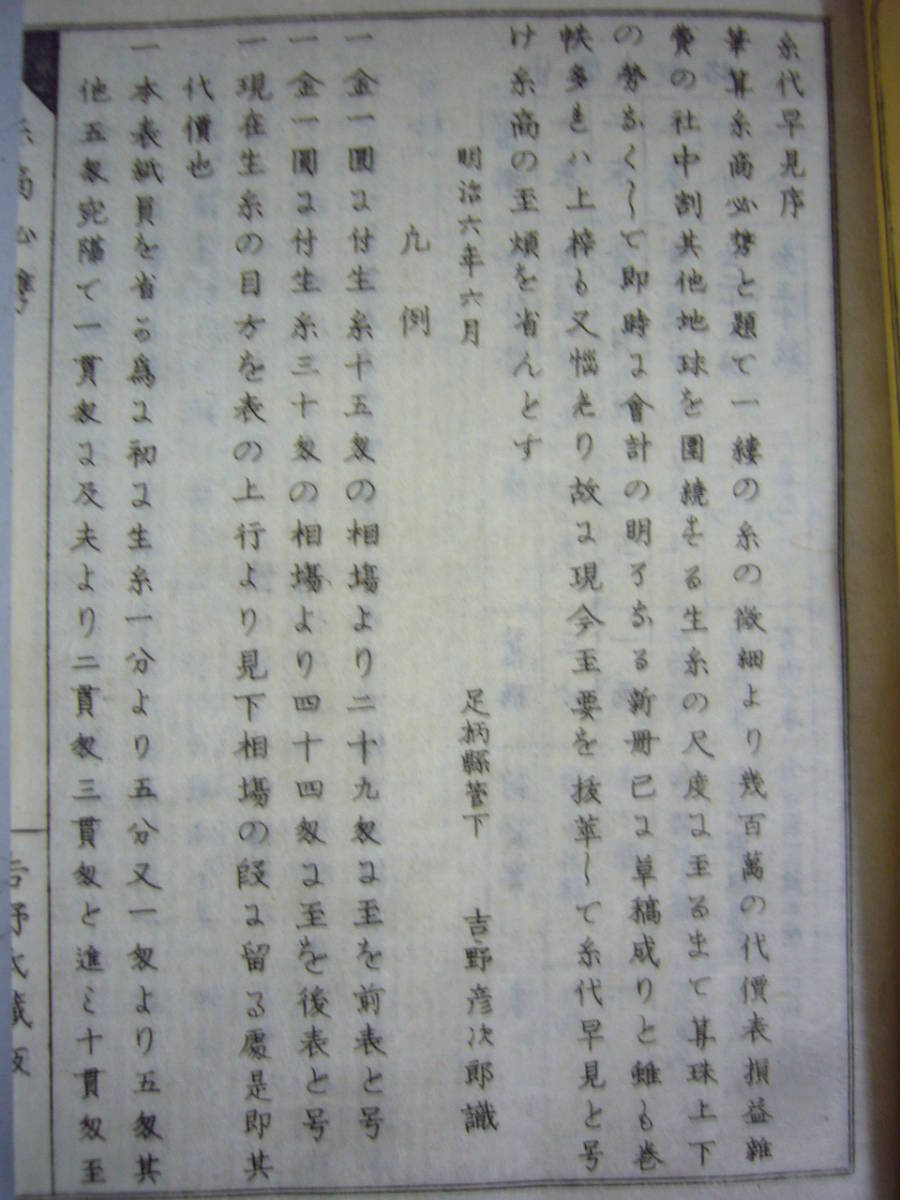 糸代早見序
筆算糸商必携と題て一縷の糸の微細より幾百萬の代價表損益雜
費の社中割其他地球を圍繞する生糸の尺度に至るまて算珠上下
の勞なくして即時に會計の明了なる新冊已に草稿成りと雖も巻
帙多きハ上梓も又惱たり故に現今至要を抜萃して糸代早見と号
け糸商の至煩を省んとす
明治六年六月　足柄縣管下　吉野彦次郎識
凢例
一金一圓に付生糸十五匁の相塲より二十九匁に至を前表と号
一金一圓に付生糸三十匁の相塲より四十四匁に至を後表と号
一現在生糸の目方を表の上行より見下相塲の段に留る處是即其
代價也
一本表紙員を省る為に初に生糸一分より五分又一匁より五匁其
他五匁宛隔て一貫匁に及夫より二貫匁三貫匁と進ミ十貫匁至
糸商必携
吉野氏藏版